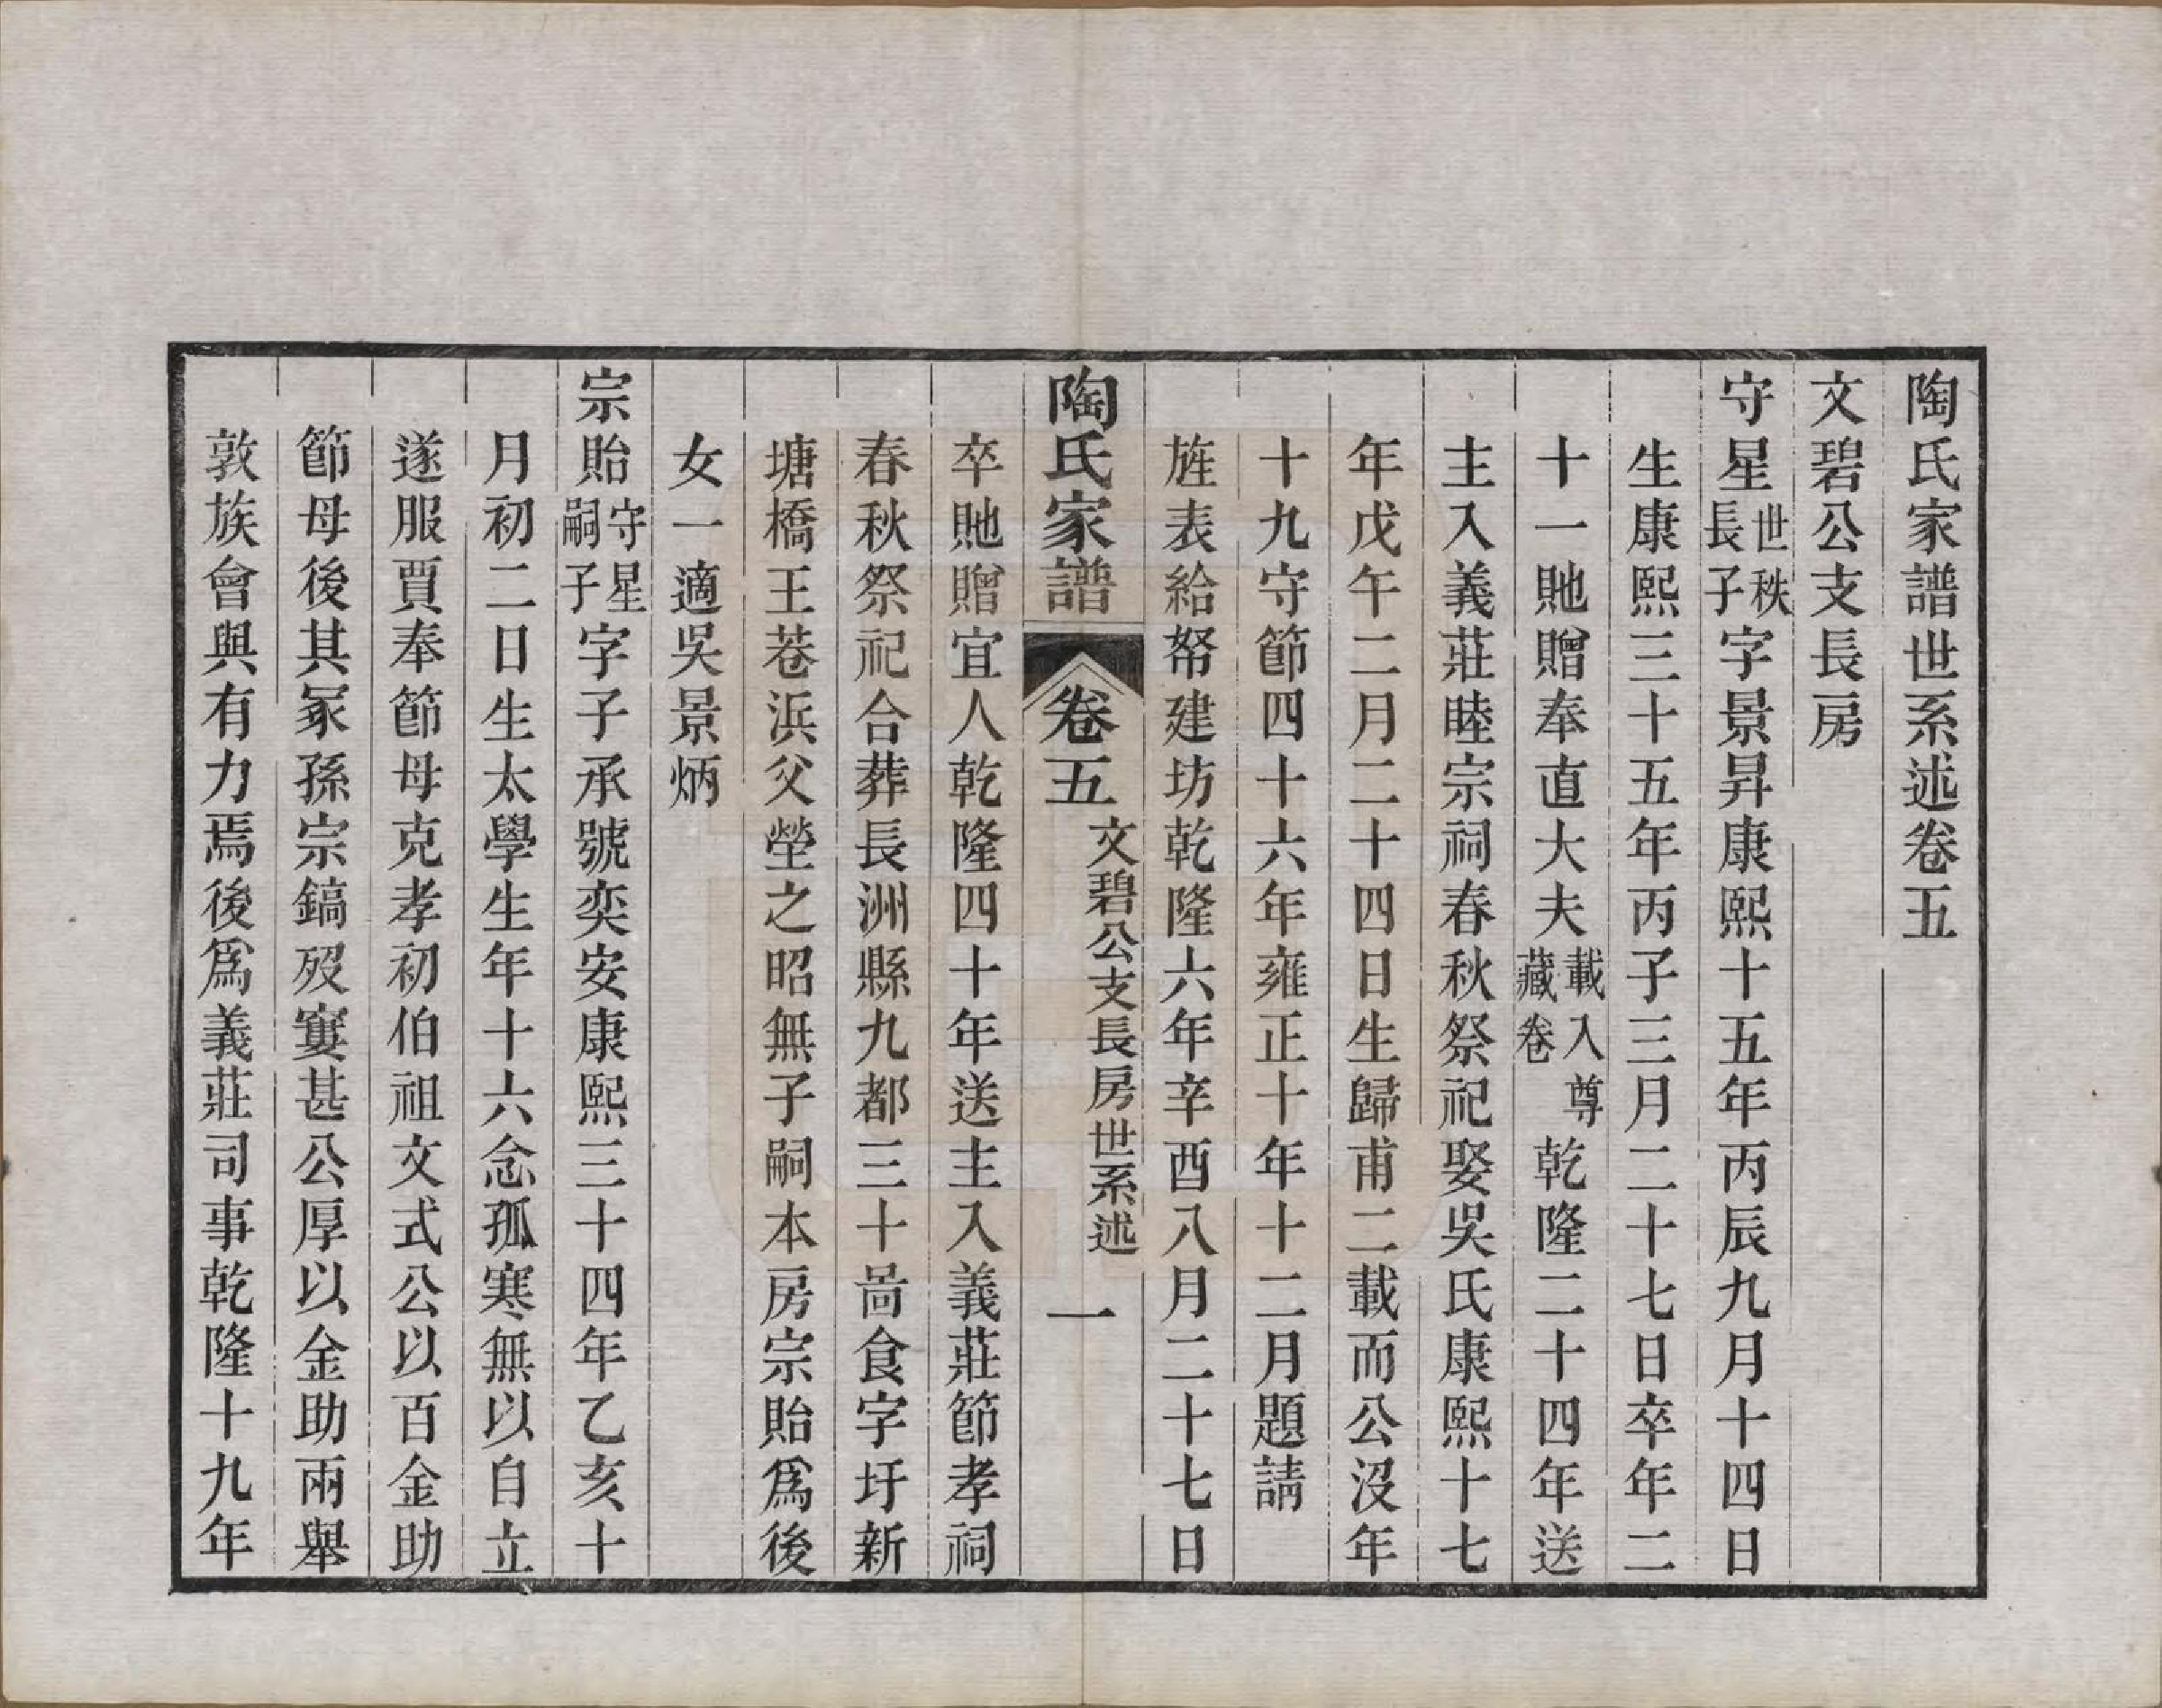 陶氏家譜世系述卷五
文碧公支長房
守星世秩長子字景昇康熙十五年丙辰九月十四日
生康熙三十五年丙子三月二十七日卒年二
十一貤贈奉直大夫載入尊藏卷乾隆二十四年送
主入義莊睦宗祠春秋祭祀娶吳氏康熙十七
年戊午二月二十四日生歸甫二載而公沒年
十九守節四十六年雍正十年十二月題請
旌表給帑建坊乾隆六年辛酉八月二十七日
陶氏家譜 卷五 文碧公支長房世系述 一
卒貤贈宜人乾隆四十年送主入義莊節孝祠
春秋祭祀合葬長洲縣九都三十啚食字圩新
塘橋王巷浜父塋之昭無子嗣本房宗貽爲後
女一適吳景炳
宗貽守星嗣子字子承號奕安康熙三十四年乙亥十
月初二日生太學生年十六念孤寒無以自立
遂服賈奉節母克孝初伯祖文式公以百金助
節母後其冢孫宗鎬歿窶甚公厚以金助兩舉
敦族會與有力焉後爲義莊司事乾隆十九年